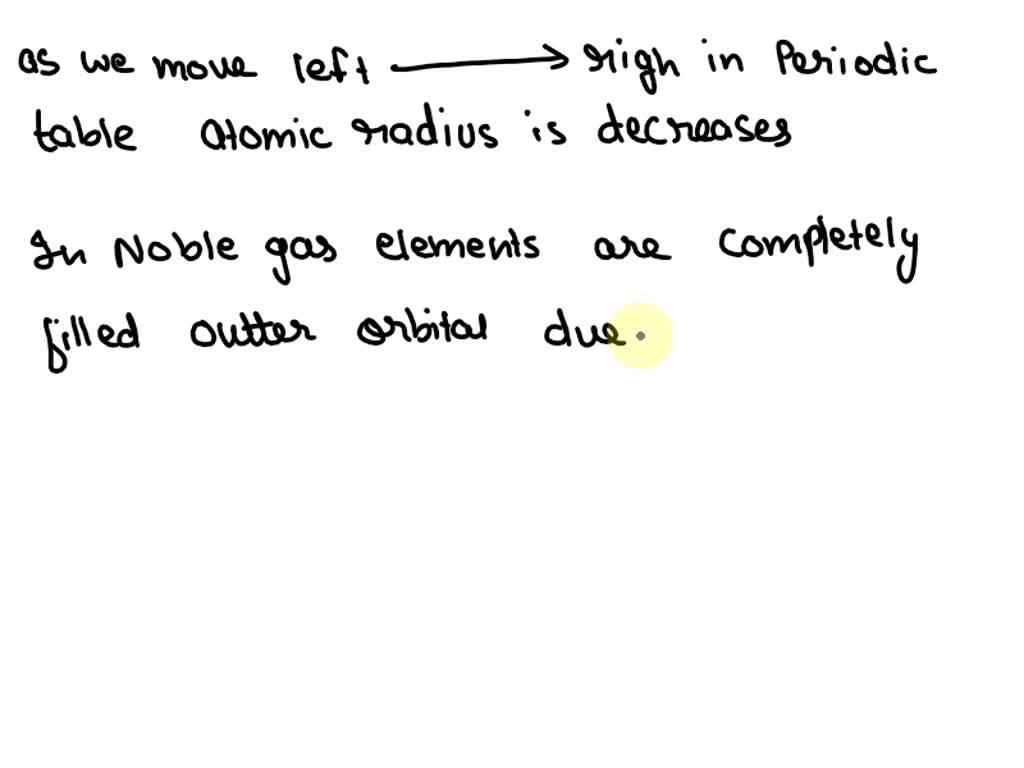 as we move left ⟶ righ in Periodic
table atomic radius is decreases
In Noble gas elements are completely
filled outter orbital due